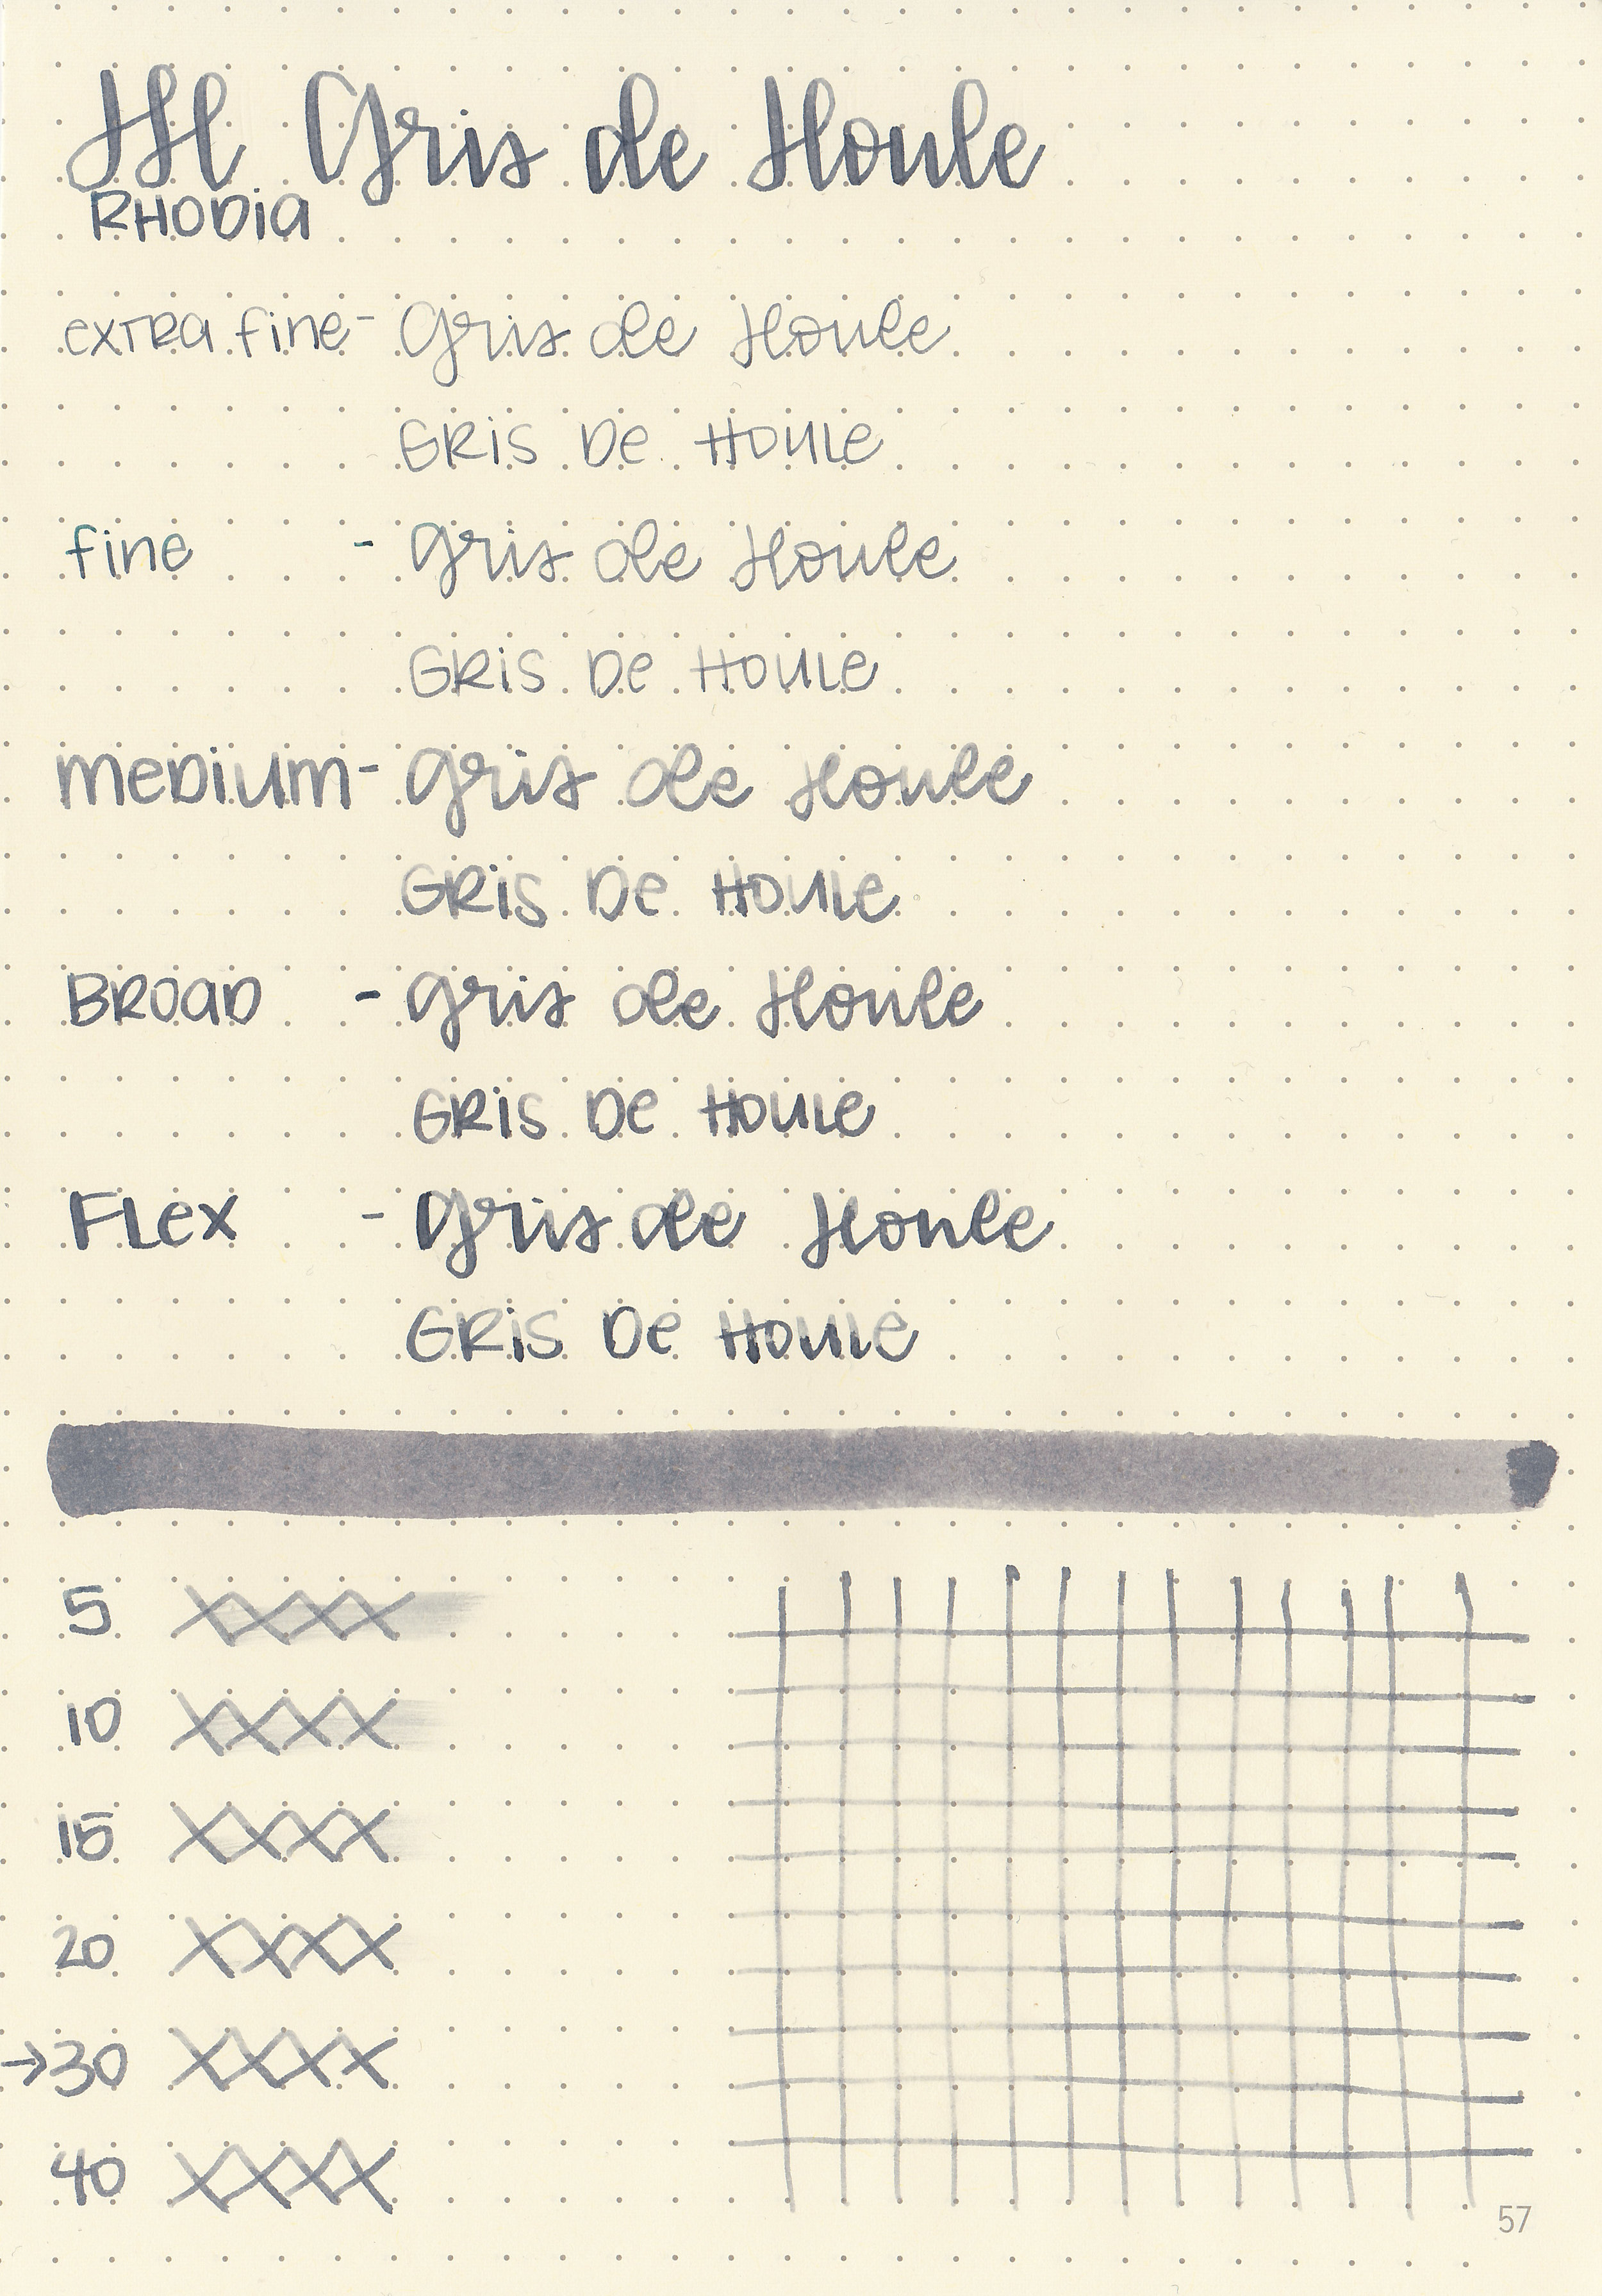 JH Gris de Houle
RHODia
extra fine - Gris de Houle
GRiS De HOULe
fine - Gris de Houle
GRiS De HOULe
meDium - Gris de Houle
GRiS De HOULe
BROaD - Gris de Houle
GRiS De HOULe
FLex - Gris de Houle
GRiS De HOULe
5 XXXX
10 XXXX
15 XXXX
20 XXXX
→30 XXXX
40 XXXX
57